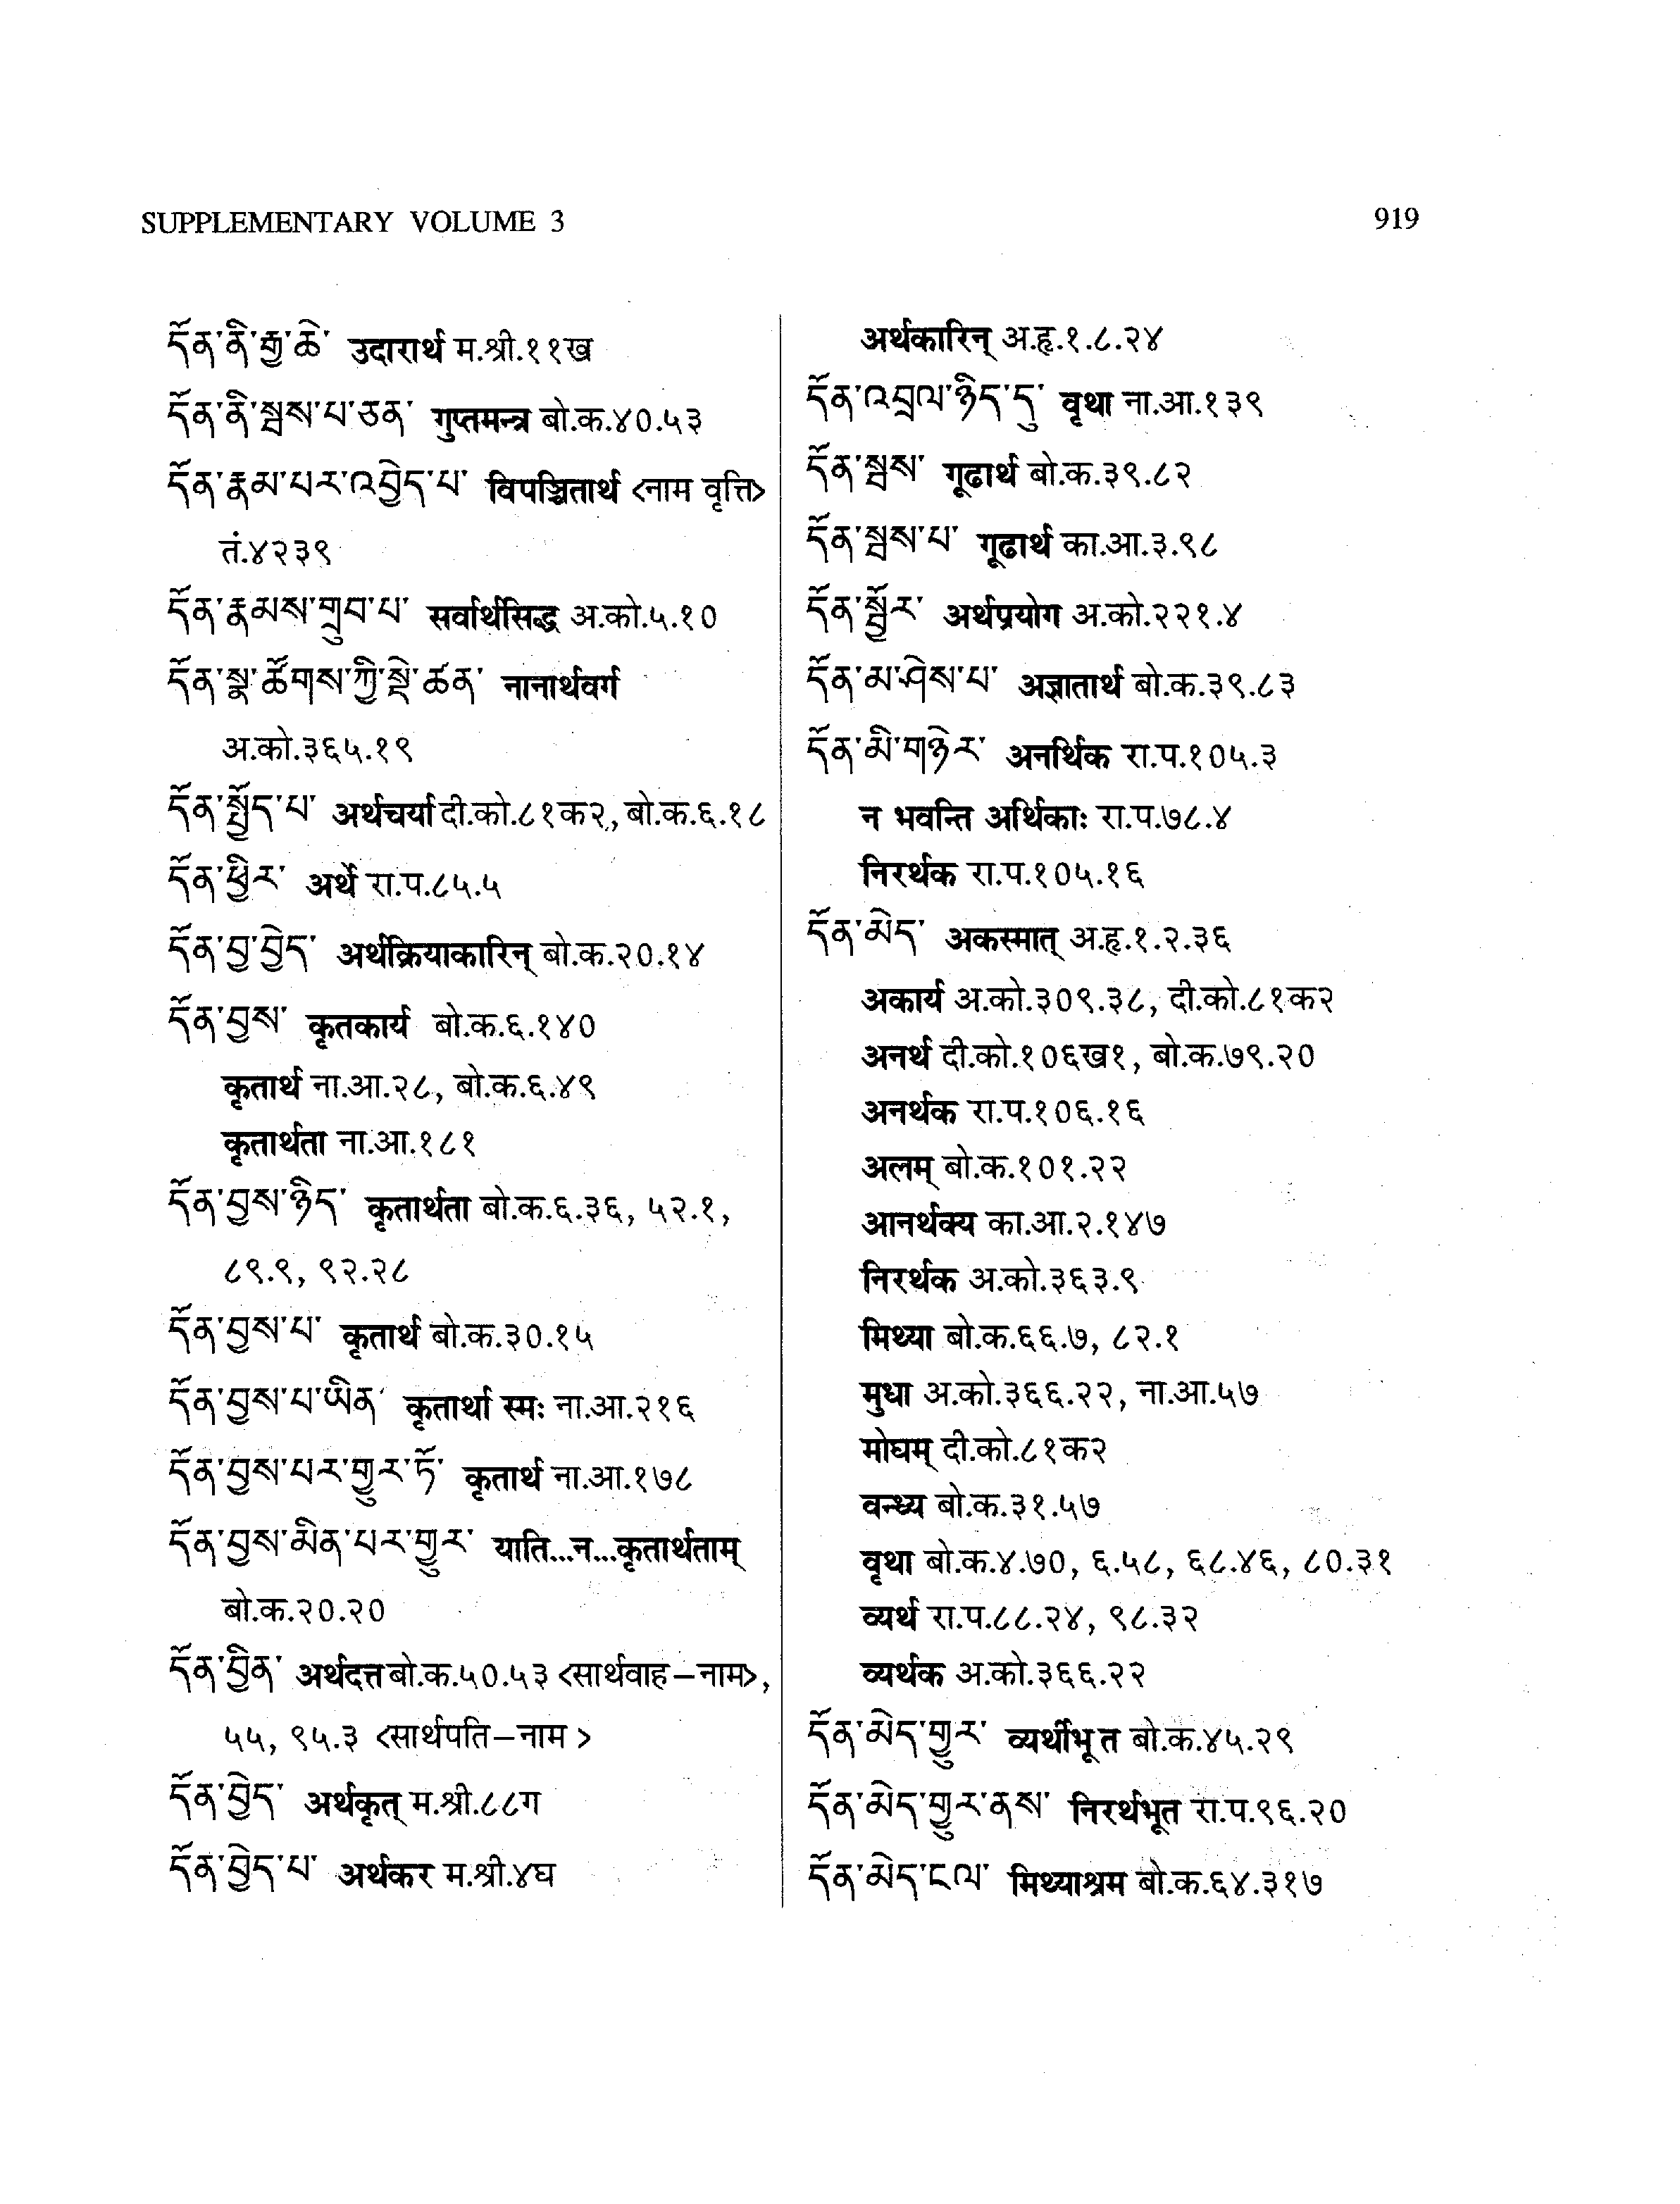 SUPPLEMENTARY VOLUME 3
919
དོན་ནི་རྒྱ་ཆེ་ उदारार्थ म.श्री.११ख
དོན་ནི་སྦས་པ་ཅན་ गुप्तमन्त्र बो.क.४०.५३
དོན་རྣམ་པར་འབྱེད་པ་ विपञ्चितार्थ <नाम वृत्ति>
तं.४२३९
དོན་རྣམས་གྲུབ་པ་ सर्वार्थसिद्ध अ.को.५.१०
དོན་སྣ་ཚོགས་ཀྱི་སྡེ་ཚན་ नानार्थवर्ग
अ.को.३६५.१९
དོན་སྤྱོད་པ་ अर्थचर्या दी.को.८१क२, बो.क.६.१८
དོན་ཕྱིར་ अर्थे रा.प.८५.५
དོན་བྱ་བྱེད་ अर्थक्रियाकारिन् बो.क.२०.१४
དོན་བྱས་ कृतकार्य बो.क.६.१४०
कृतार्थ ना.आ.२८, बो.क.६.४९
कृतार्थता ना.आ.१८१
དོན་བྱས་ཉིད་ कृतार्थता बो.क.६.३६, ५२.१,
८९.९, ९२.२८
དོན་བྱས་པ་ कृतार्थ बो.क.३०.१५
དོན་བྱས་པ་ཡིན་ कृतार्था स्मः ना.आ.२१६
དོན་བྱས་པར་གྱུར་ཏོ་ कृतार्थ ना.आ.१७८
དོན་བྱས་མིན་པར་གྱུར་ याति...न...कृतार्थताम्
बो.क.२०.२०
དོན་བྱིན་ अर्थदत्त बो.क.५०.५३ <सार्थवाह–नाम>,
५५, ९५.३ <सार्थपति–नाम >
དོན་བྱེད་ अर्थकृत् म.श्री.८८ग
དོན་བྱེད་པ་ अर्थकर म.श्री.४घ
अर्थकारिन् अ.हृ.१.८.२४
དོན་འབྲལ་ཉིད་དུ་ वृथा ना.आ.१३९
དོན་སྦས་ गूढार्थ बो.क.३९.८२
དོན་སྦས་པ་ गूढार्थ का.आ.३.९८
དོན་སྦྱོར་ अर्थप्रयोग अ.को.२२१.४
དོན་མ་ཤེས་པ་ अज्ञातार्थ बो.क.३९.८३
དོན་མི་གཉེར་ अनर्थिक रा.प.१०५.३
न भवन्ति अर्थिकाः रा.प.७८.४
निरर्थक रा.प.१०५.१६
དོན་མེད་ अकस्मात् अ.हृ.१.२.३६
अकार्य अ.को.३०९.३८, दी.को.८१क२
अनर्थ दी.को.१०६ख१, बो.क.७९.२०
अनर्थक रा.प.१०६.१६
अलम् बो.क.१०१.२२
आनर्थक्य का.आ.२.१४७
निरर्थक अ.को.३६३.९
मिथ्या बो.क.६६.७, ८२.१
मुधा अ.को.३६६.२२, ना.आ.५७
मोघम् दी.को.८१क२
वन्ध्य बो.क.३१.५७
वृथा बो.क.४.७०, ६.५८, ६८.४६, ८०.३१
व्यर्थ रा.प.८८.२४, ९८.३२
व्यर्थक अ.को.३६६.२२
དོན་མེད་གྱུར་ व्यर्थीभूत बो.क.४५.२९
དོན་མེད་གྱུར་ནས་ निरर्थभूत रा.प.९६.२०
དོན་མེད་ངལ་ मिथ्याश्रम बो.क.६४.३१७